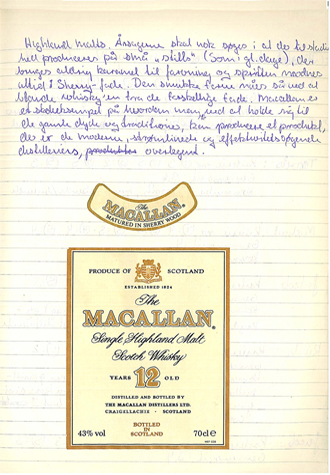 Highland Malts. Årsagerne skal nok søges i at de til stadig-
hed producerer på små "stills" (som i gl. dage), der
bruges aldrig karamel til farvning og spiritten modnes
altid i Sherry-fade. Den smukke farve nås så ved at
blande whisky'en fra de forskellige fade. Macallan er
et skoleeksempel på hvordan man ved at holde sig til
de gamle dyder og traditioner, kan producere et produkt,
der er de moderne, strømlinede og effektivitetssøgende
distilleries, overlegent.
The
MACALLAN®
MATURED IN SHERRY WOOD
PRODUCE OF SCOTLAND
ESTABLISHED 1824
The
MACALLAN®
Single Highland Malt
Scotch Whisky
YEARS 12 OLD
DISTILLED AND BOTTLED BY
THE MACALLAN DISTILLERS LTD.
CRAIGELLACHIE · SCOTLAND
43% vol BOTTLED IN SCOTLAND 70cl e